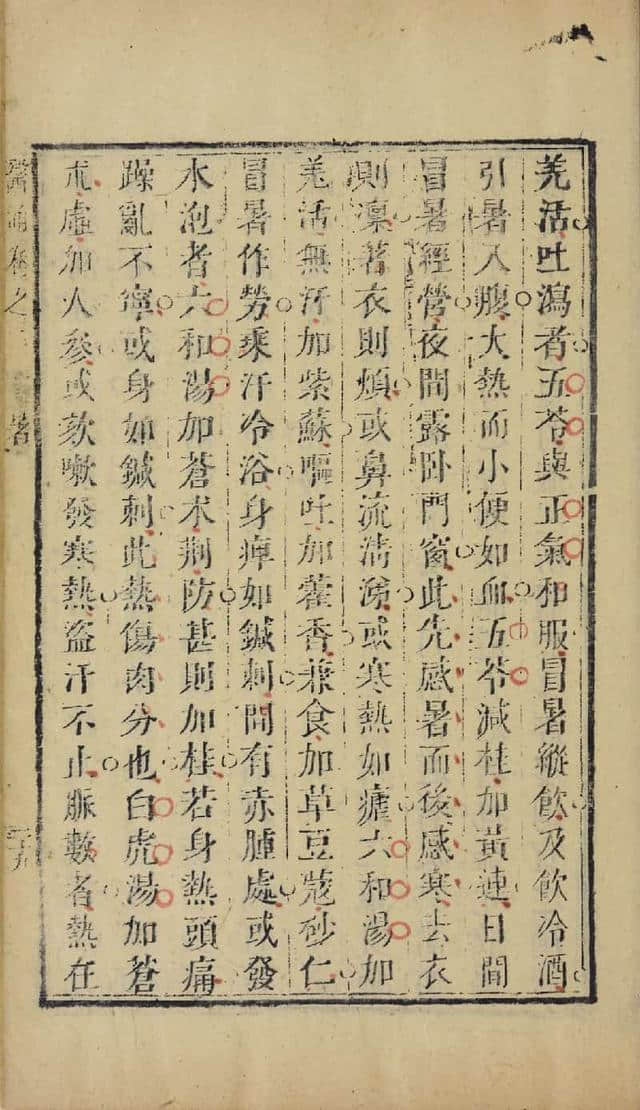 羗活吐瀉者五苓與正氣和服冒暑縱飲及飲冷酒
引暑入腹大熱而小便如血五苓減桂加黃連日間
冒暑經營夜間露卧門窗此先感暑而後感寒去衣
則凜著衣則煩或鼻流淸涕或寒熱如瘧六和湯加
羗活無汗加紫蘇嘔吐加藿香兼食加草豆蔻砂仁
冒暑作勞乘汗冷浴身痺如鍼刺間有赤腫處或發
水泡者六和湯加蒼朮荆防甚則加桂若身熱頭痛
躁亂不寧或身如鍼刺此熱傷肉分也白虎湯加蒼
朮虛加人參或欬嗽發寒熱盜汗不止脈數者熱在
醫通卷之
暑